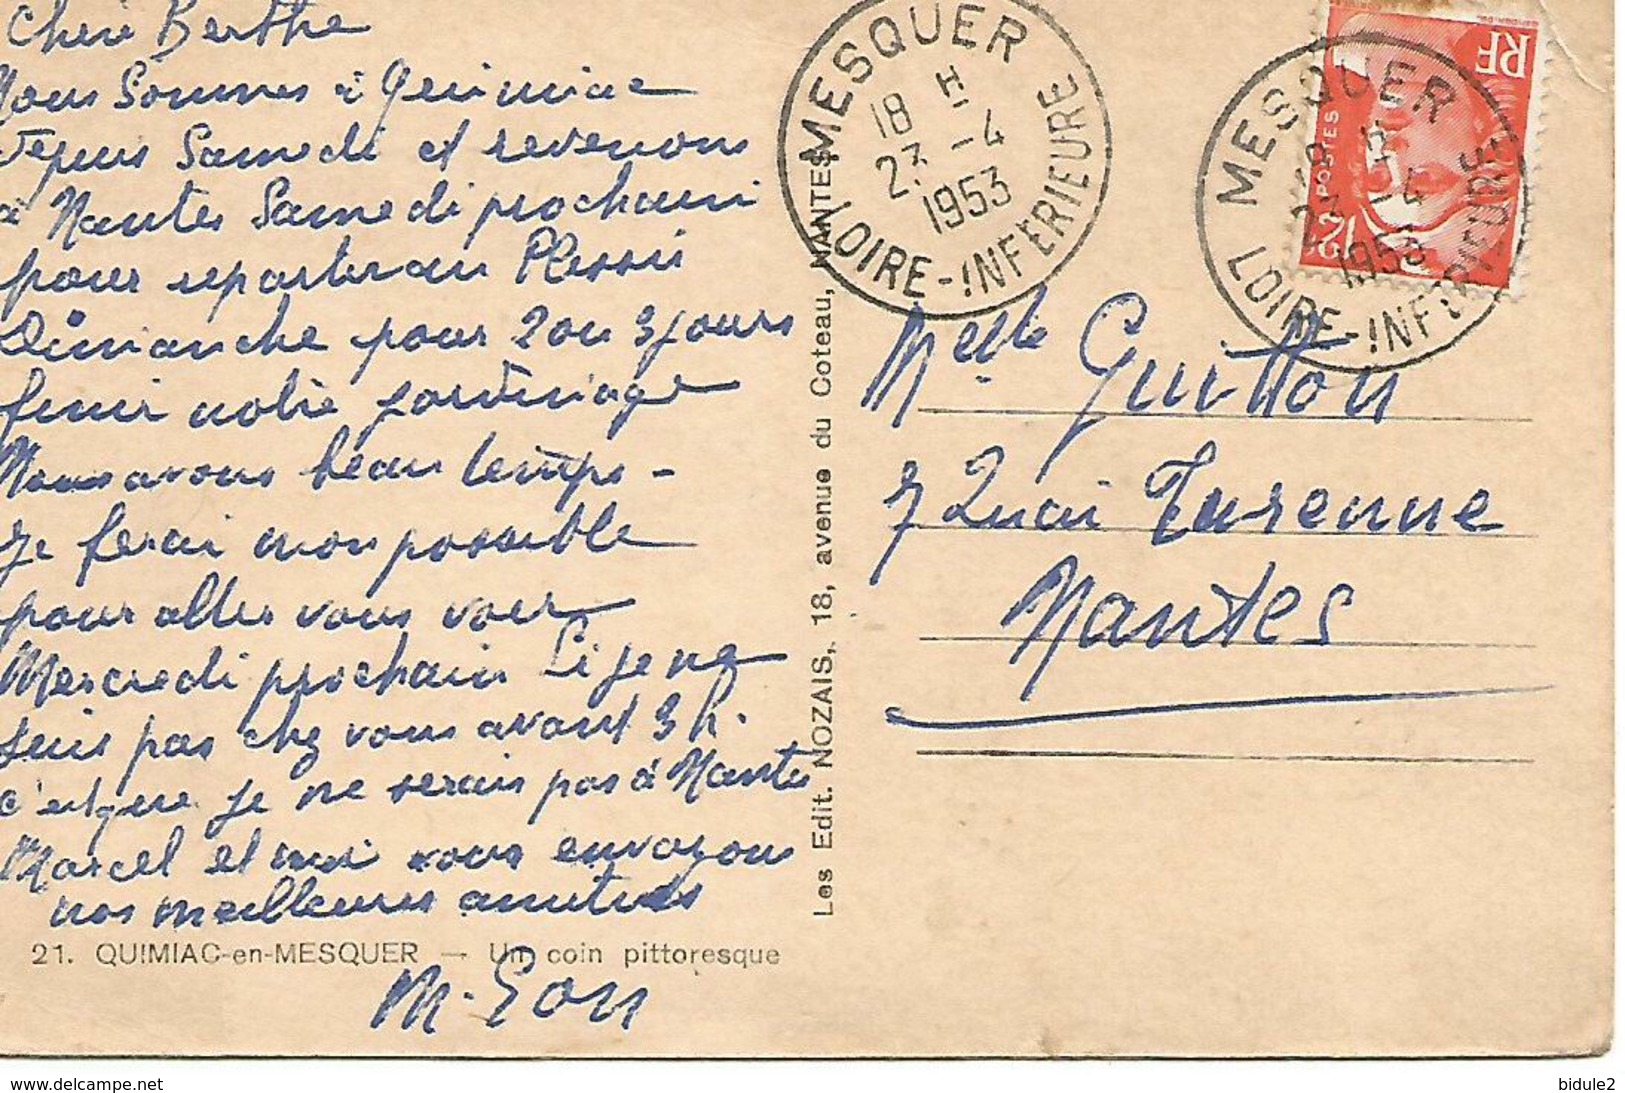 Chère Berthe
Nous Sommes à Quimiac
depuis Samedi et revenons
à Nantes Samedi prochain
pour repartir au Plessis
Dimanche pour 2 ou 3 jours
finir notre jardinage
Nous avons beau temps -
Je ferai mon possible
pour aller vous voir
Mercredi prochain Si je ne
suis pas chez vous avant 3 h.
c'est que je ne serais pas à Nantes
Marcel et moi vous envoyons
nos meilleures amitiés
21. QUIMIAC-en-MESQUER — Un coin pittoresque
M. Lou
Les Edit. NOZAIS, 18, avenue du Coteau, NANTES
MESQUER
18 H
23 -4
1953
LOIRE-INFÉRIEURE
MESQUER
18 H
23 -4
1953
LOIRE-INFÉRIEURE
RF
POSTES
Melle Guitton
7 Quai Turenne
Nantes
delcampe.net
bidule2